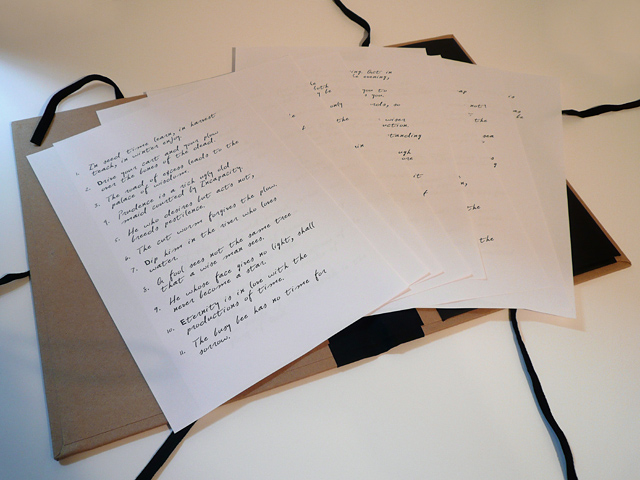 1. In seed time learn, in harvest
teach, in winter enjoy.
2. Drive your cart and your plow
over the bones of the dead.
3. The road of excess leads to the
palace of wisdom.
4. Prudence is a rich ugly old
maid courted by Incapacity.
5. He who desires but acts not,
breeds pestilence.
6. The cut worm forgives the plow.
7. Dip him in the river who loves
water.
8. A fool sees not the same tree
that a wise man sees.
9. He whose face gives no light, shall
never become a star.
10. Eternity is in love with the
productions of time.
11. The busy bee has no time for
sorrow.
in
you to
you.
ugly
the
wiser
standing
in
ugh
are
it
f
the
the
sea
the